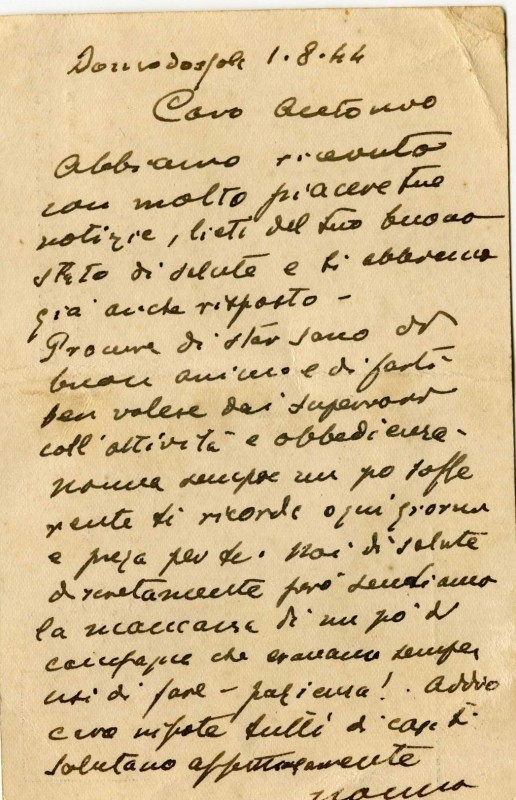 Domodossola 1.8.44
Caro Antonio
Abbiamo ricevuto
con molto piacere tue
notizie, lieti del tuo buono
stato di salute e ti abbiamo
già anche risposto -
Procura di star sano di
buon animo e di farti
ben volere dai superiori
coll'attività e obbedienza -
nonna sempre un po soffe
rente ti ricorda ogni giorno
e prega per te. Noi di salute
discretamente però sentiamo
la mancanza di un pò di
campagna che eravamo sempre
usi di fare - pazienza! . Addio
caro nipote tutti di casa ti
salutano affettuosamente
nonno